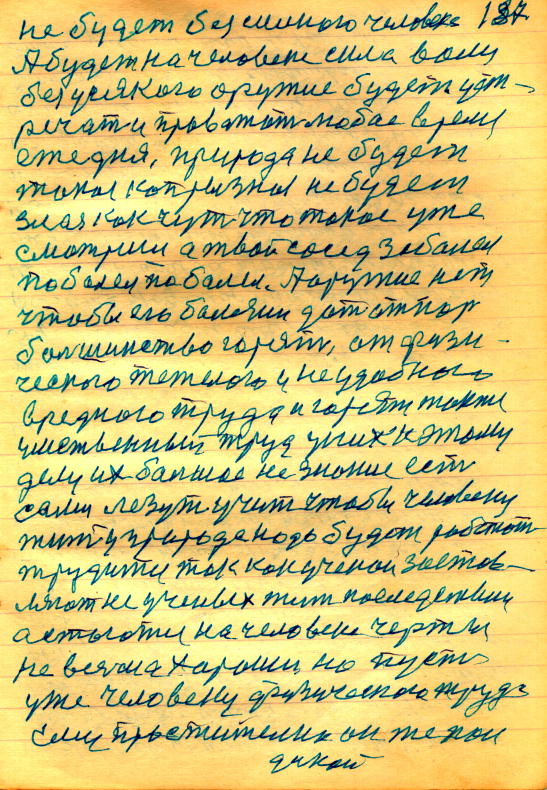 не будет безсилного человека 137
А будет на человеке сила воли
без усякого оружие будет уст-
речат и провожат любое время
ежедня, природа не будет
такая капризная не будет
злая как чут что такое уже
смотриш а твой сосед заболел
поболел поболел. А оружие нет
чтобы его болезни дат отпор
болшинство горят, от физи-
ческого тяжелого и неудобного
вредного труда и горят также
умственный труд у них к этому
делу их балшое не знание ест
сами лезут учит чтобы человеку
жит у природе надо будет работат
трудится так как ученои застав-
ляют не ученых жит последствии
астаются на человеке черты
не всягиа хароши но пусть
уже человеку физического труда
ему простително он же такой
дикой